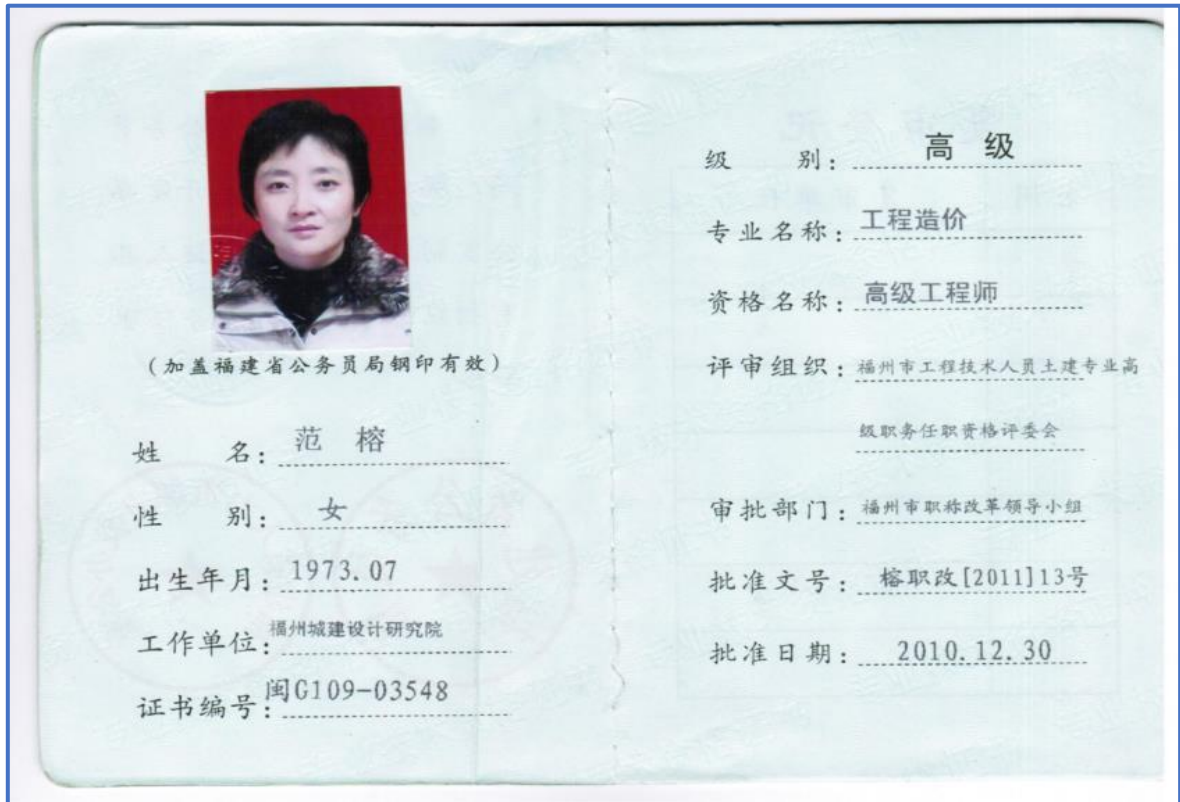 (加盖福建省公务员局钢印有效)
姓 名: 范 榕
性 别: 女
出生年月: 1973.07
工作单位: 福州城建设计研究院
证书编号: 闽G109-03548
级 别: 高 级
专业名称: 工程造价
资格名称: 高级工程师
评审组织: 福州市工程技术人员土建专业高
级职务任职资格评委会
审批部门: 福州市职称改革领导小组
批准文号: 榕职改[2011]13号
批准日期: 2010.12.30